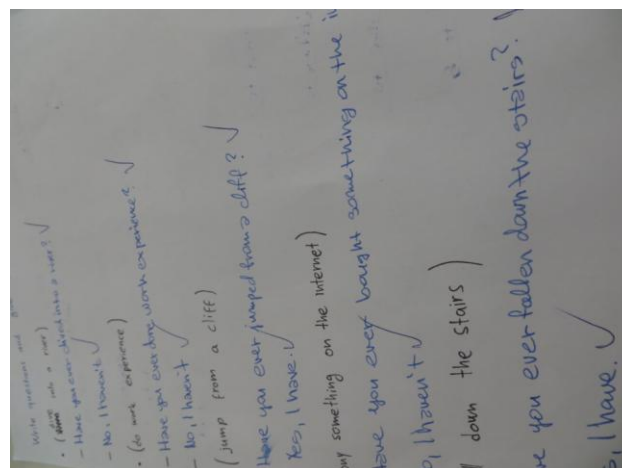 Write questions and
• (dive into a river)
- Have you ever dived into a river? ✓
- No, I haven't ✓
• (do work experience)
- Have you ever done work experience? ✓
- No, I haven't ✓
(jump from a cliff)
Have you ever jumped from a cliff? ✓
Yes, I have. ✓
something on the internet)
you ever baught something on the
I haven't ✓
down the stairs)
you ever fallen down the stairs?
I have. ✓